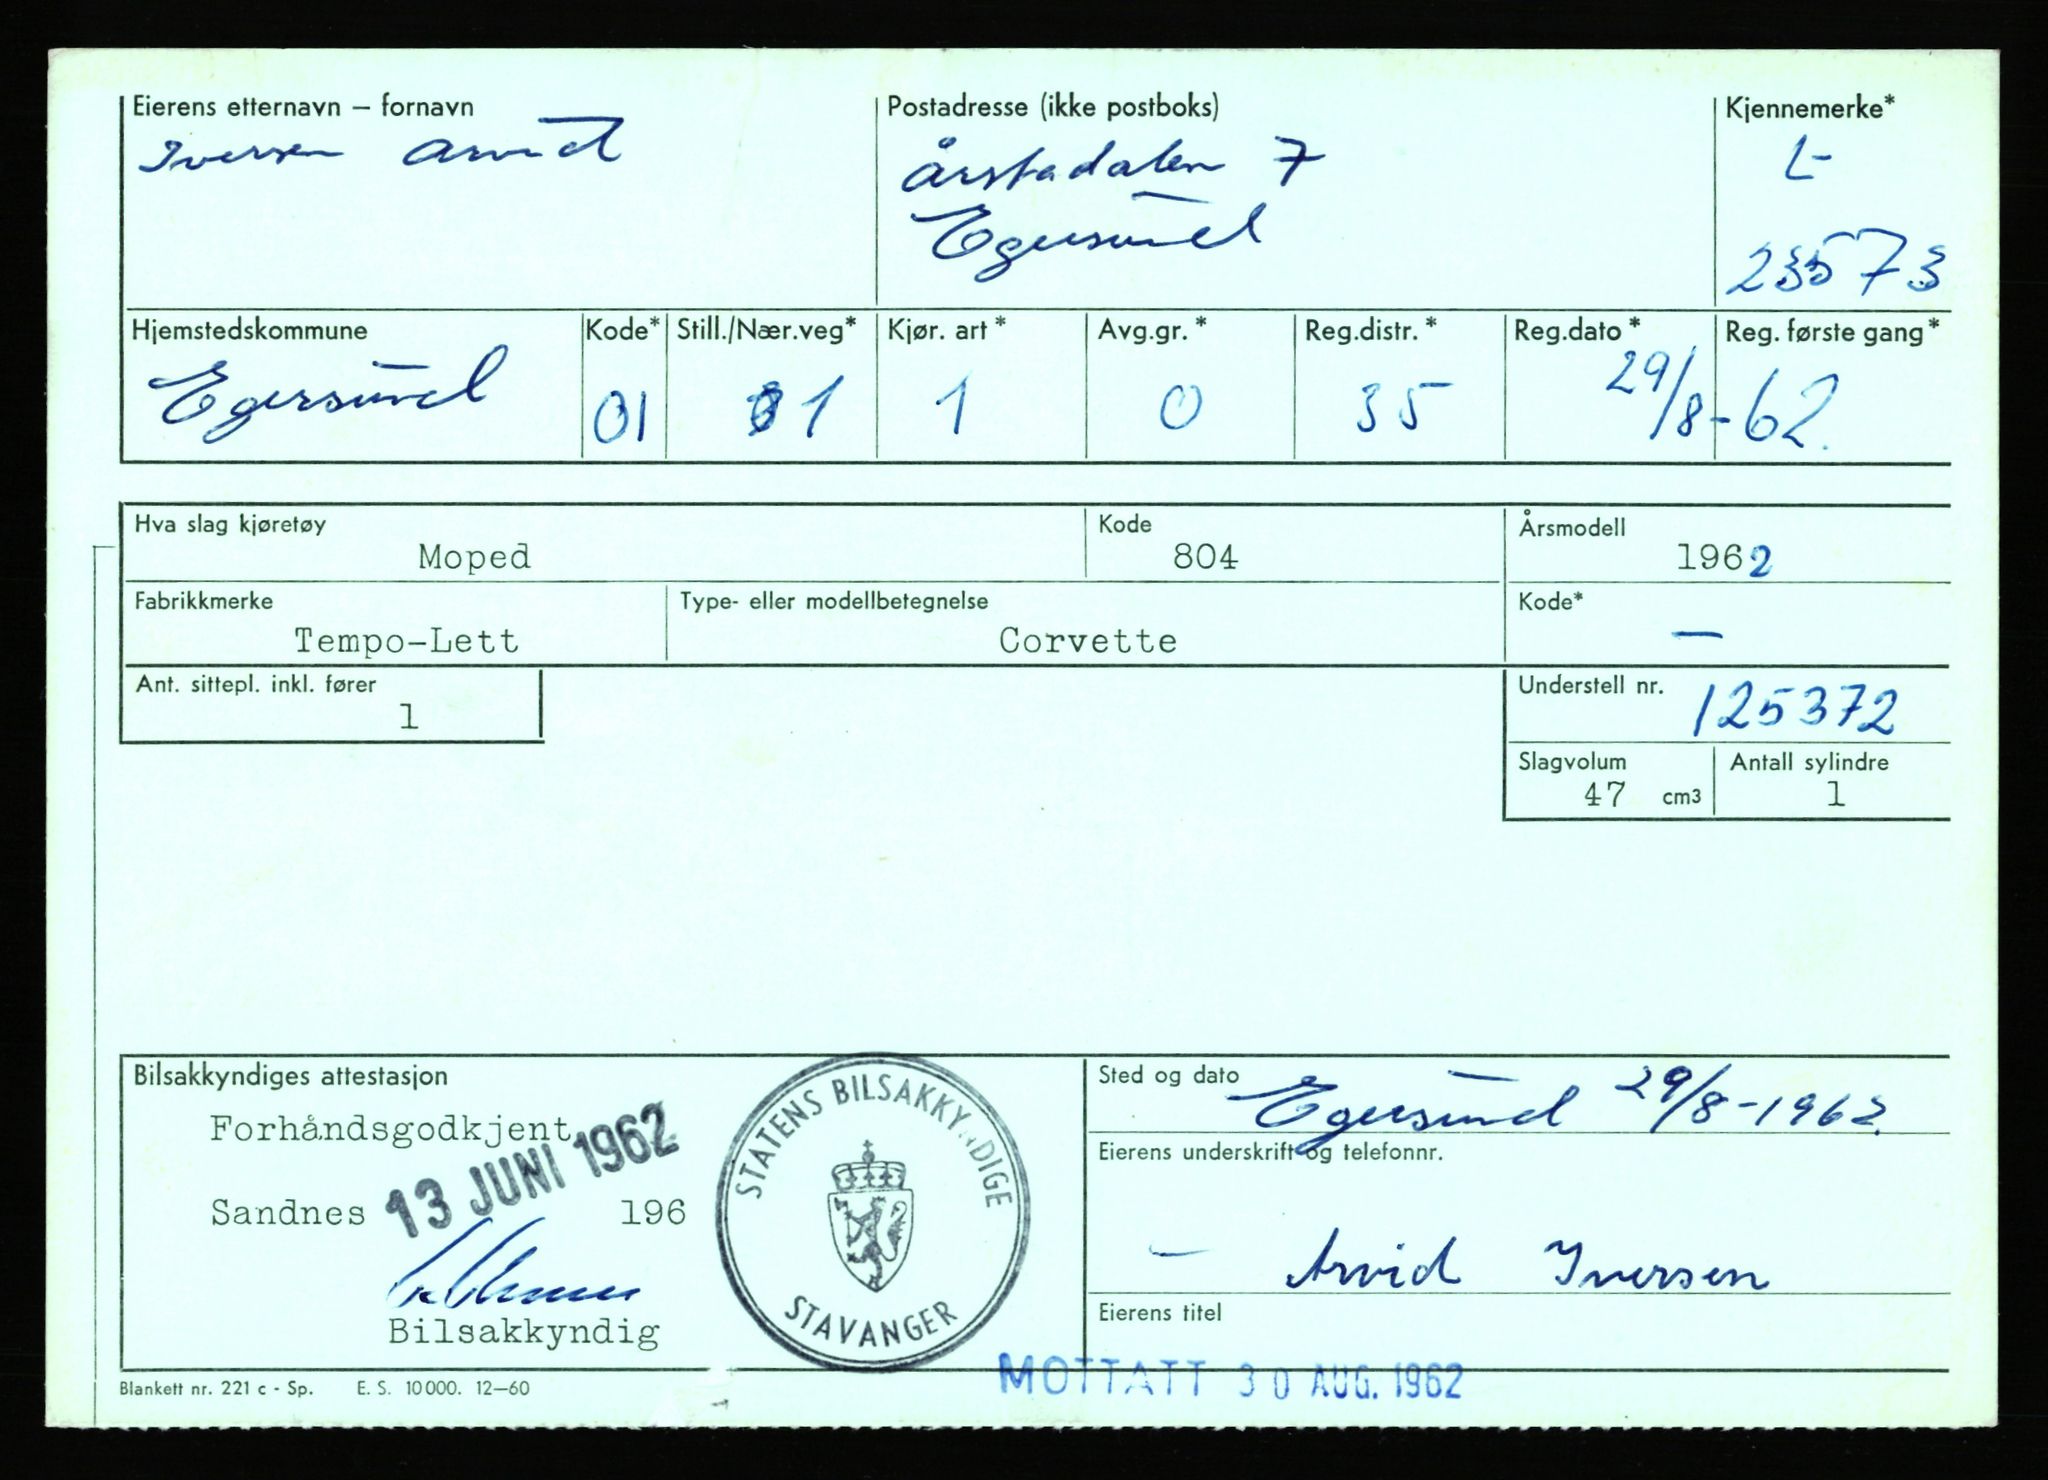 Eierens etternavn – fornavn
Iversen Arvid
Postadresse (ikke postboks)
Årstadalen 7
Egersund
Kjennemerke*
L-
23573
Hjemstedskommune
Egersund
Kode*
01
Still./Nær.veg*
1
Kjør. art*
1
Avg.gr.*
0
Reg.distr.*
35
Reg.dato*
Reg. første gang*
29/8-62.
Hva slag kjøretøy
Moped
Kode
804
Årsmodell
1962
Fabrikkmerke
Tempo-Lett
Type- eller modellbetegnelse
Corvette
Kode*
—
Ant. sittepl. inkl. fører
1
Understell nr.
125372
Slagvolum
47 cm3
Antall sylindre
1
Bilsakkyndiges attestasjon
Forhåndsgodkjent
Sandnes 13 JUNI 1962 196
Bilsakkyndig
STATENS BILSAKKYNDIGE
STAVANGER
Sted og dato
Egersund 29/8-1962
Eierens underskrift og telefonnr.
– Arvid Iversen
Eierens titel
MOTTATT 30 AUG. 1962
Blankett nr. 221 c - Sp. E. S. 10000. 12—60